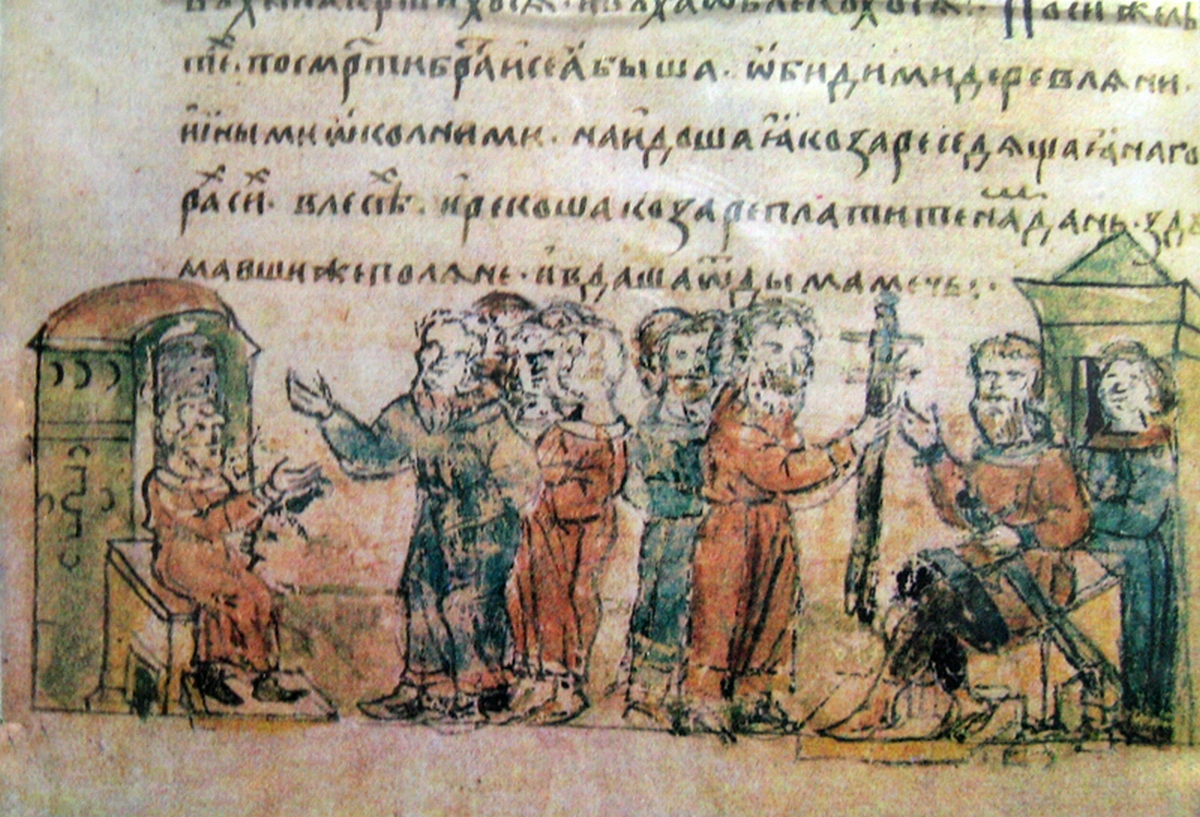 ѡблекохосѧ · По сиⷯ же лѣ
тѣⷯ · по смр҃ти бра҃и сеѧ быша · ѡбидими деревлѧни ·
и иными ѡколними · наидоша ѧ козаре седѧщаѧ на го
раⷯ сиⷯ · в лесѣⷯ · и рекоша козаре платите на дань · здꙋ
мавши же полѧне · и вдаша ѿ дыма мечь :·